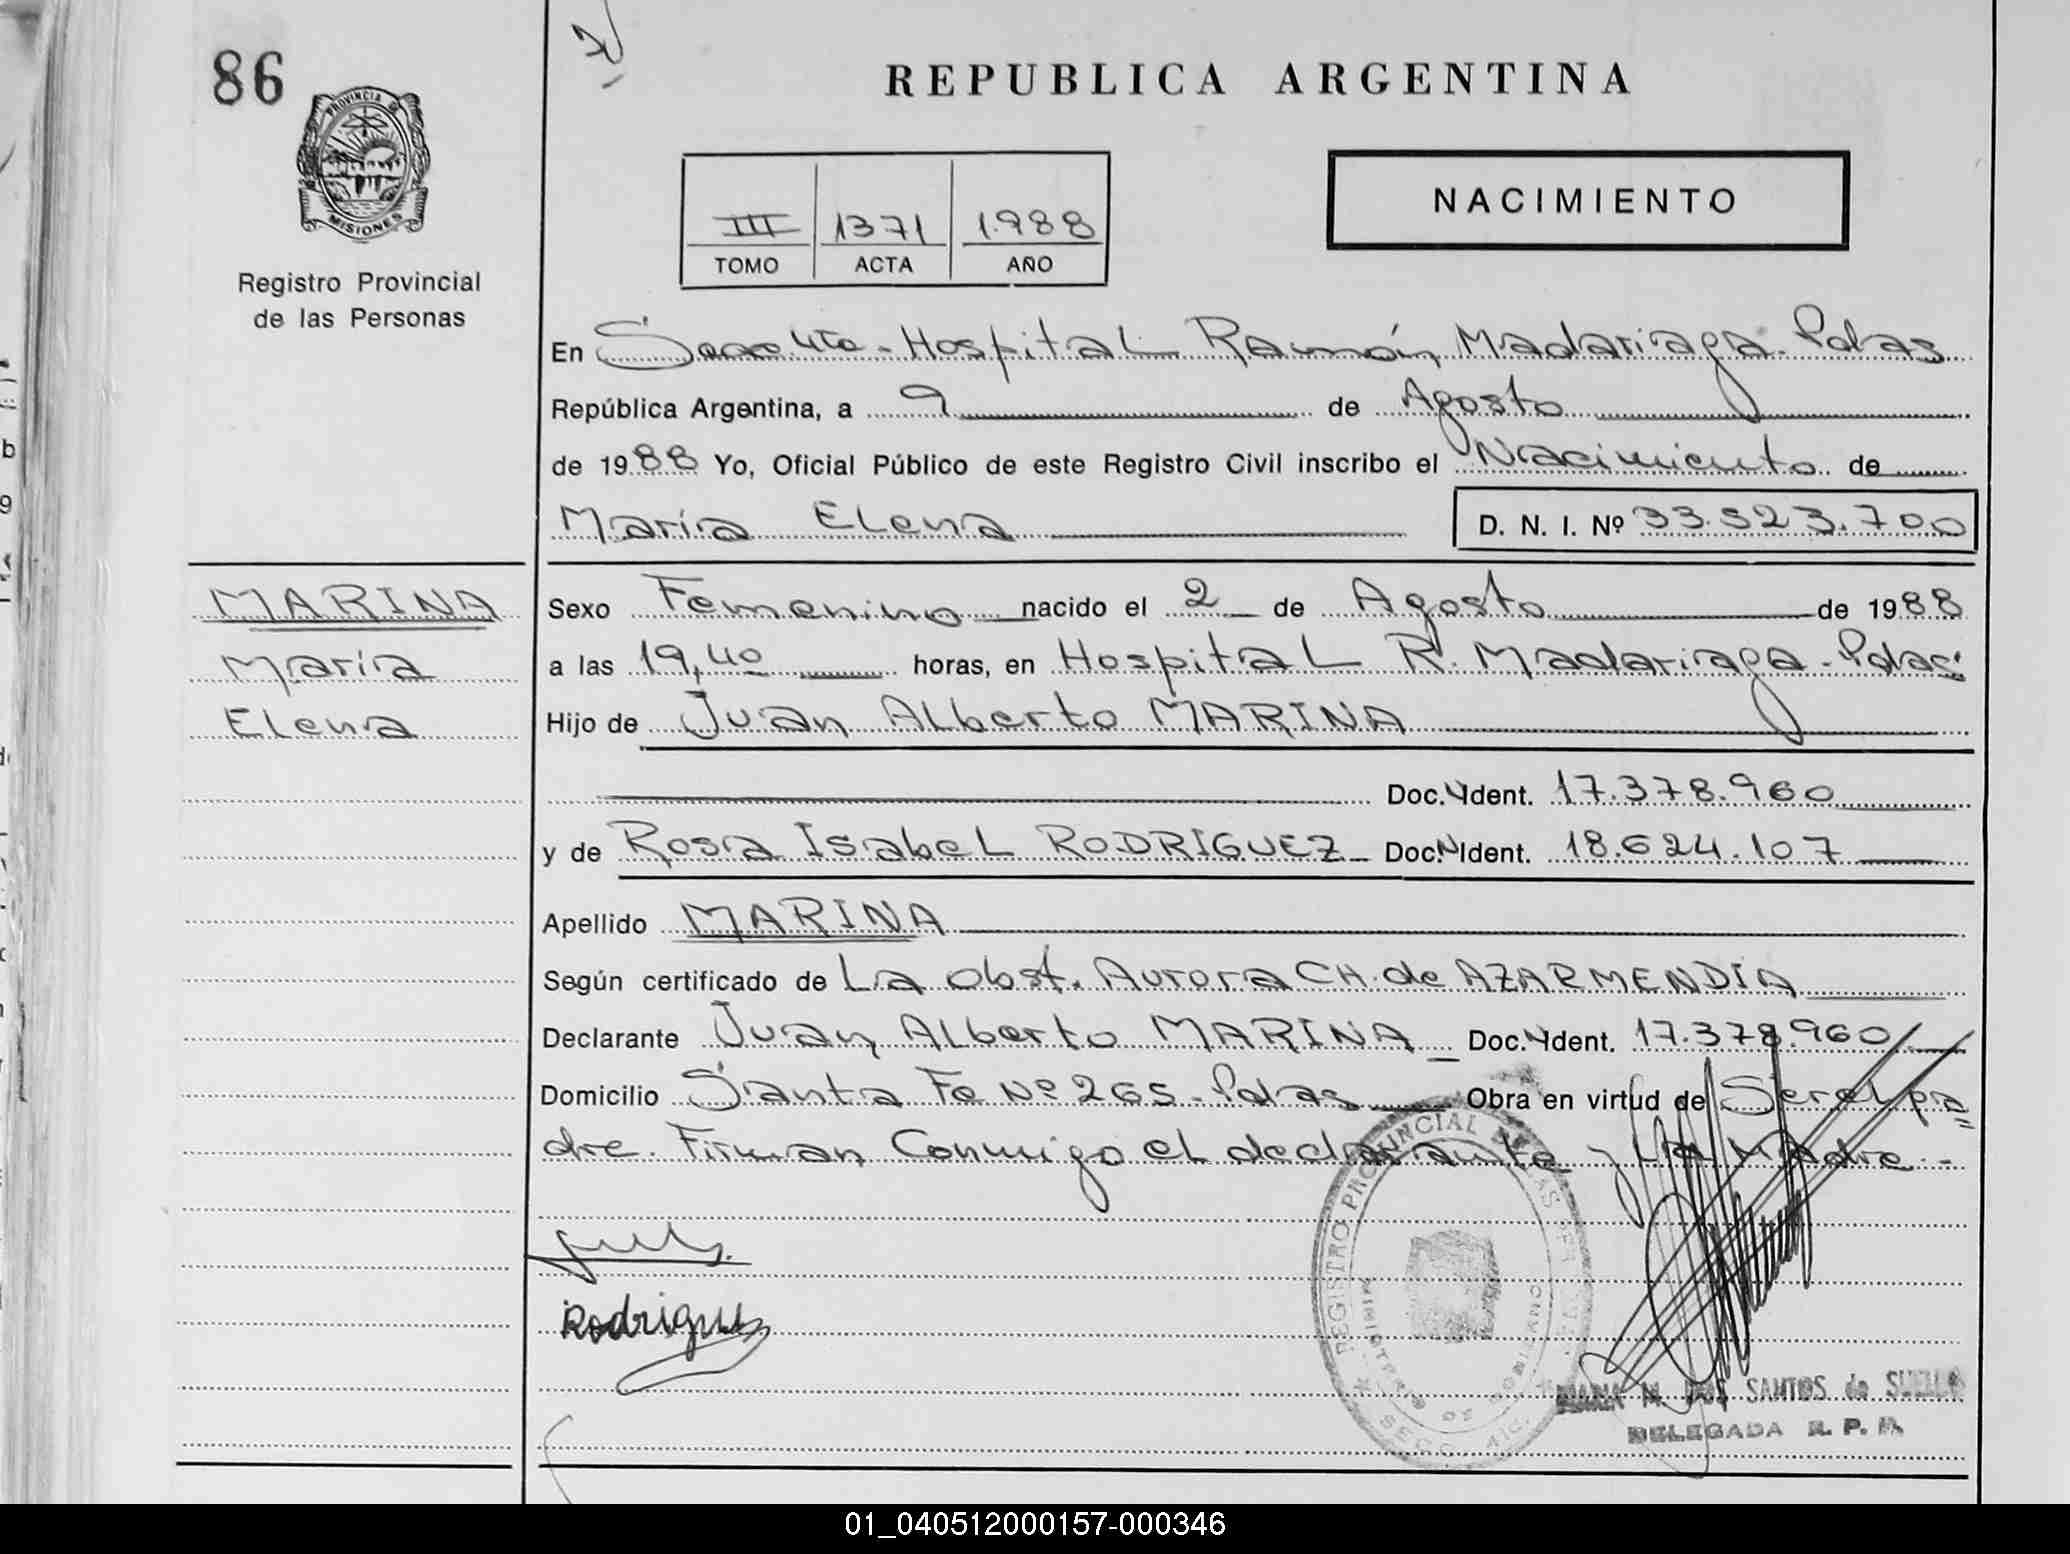 86
PROVINCIA DE
MISIONES
Registro Provincial
de las Personas
REPUBLICA ARGENTINA
III 1371 1.988
TOMO ACTA AÑO
NACIMIENTO
En Secc 4ta - Hospital Ramón Madariaga - Pdas
República Argentina, a 9 de Agosto
de 1988 Yo, Oficial Público de este Registro Civil inscribo el Nacimiento de
María Elena D. N. I. Nº 33.523.700
MARINA
María
Elena
Sexo Femenino nacido el 2 de Agosto de 1988
a las 19,40 horas, en Hospital R. Madariaga - Pdas
Hijo de Juan Alberto MARINA
Doc. Ident. 17.378.960
y de Rosa Isabel RODRIGUEZ Doc. Ident. 18.624.107
Apellido MARINA
Según certificado de La Obst. Aurora CH. de AZARMENDIA
Declarante Juan Alberto MARINA Doc. Ident. 17.378.960
Domicilio Santa Fe Nº 265 - Pdas Obra en virtud de Ser el pa=
dre. Firman Conmigo el declarante y la Madre -
Rodriguez
REGISTRO PROVINCIAL DE LAS PERSONAS
MINISTERIO DE GOBIERNO
SECC. 4TA.
MARIA M. DOS SANTOS de
DELEGADA R. P. P.
01_040512000157-000346